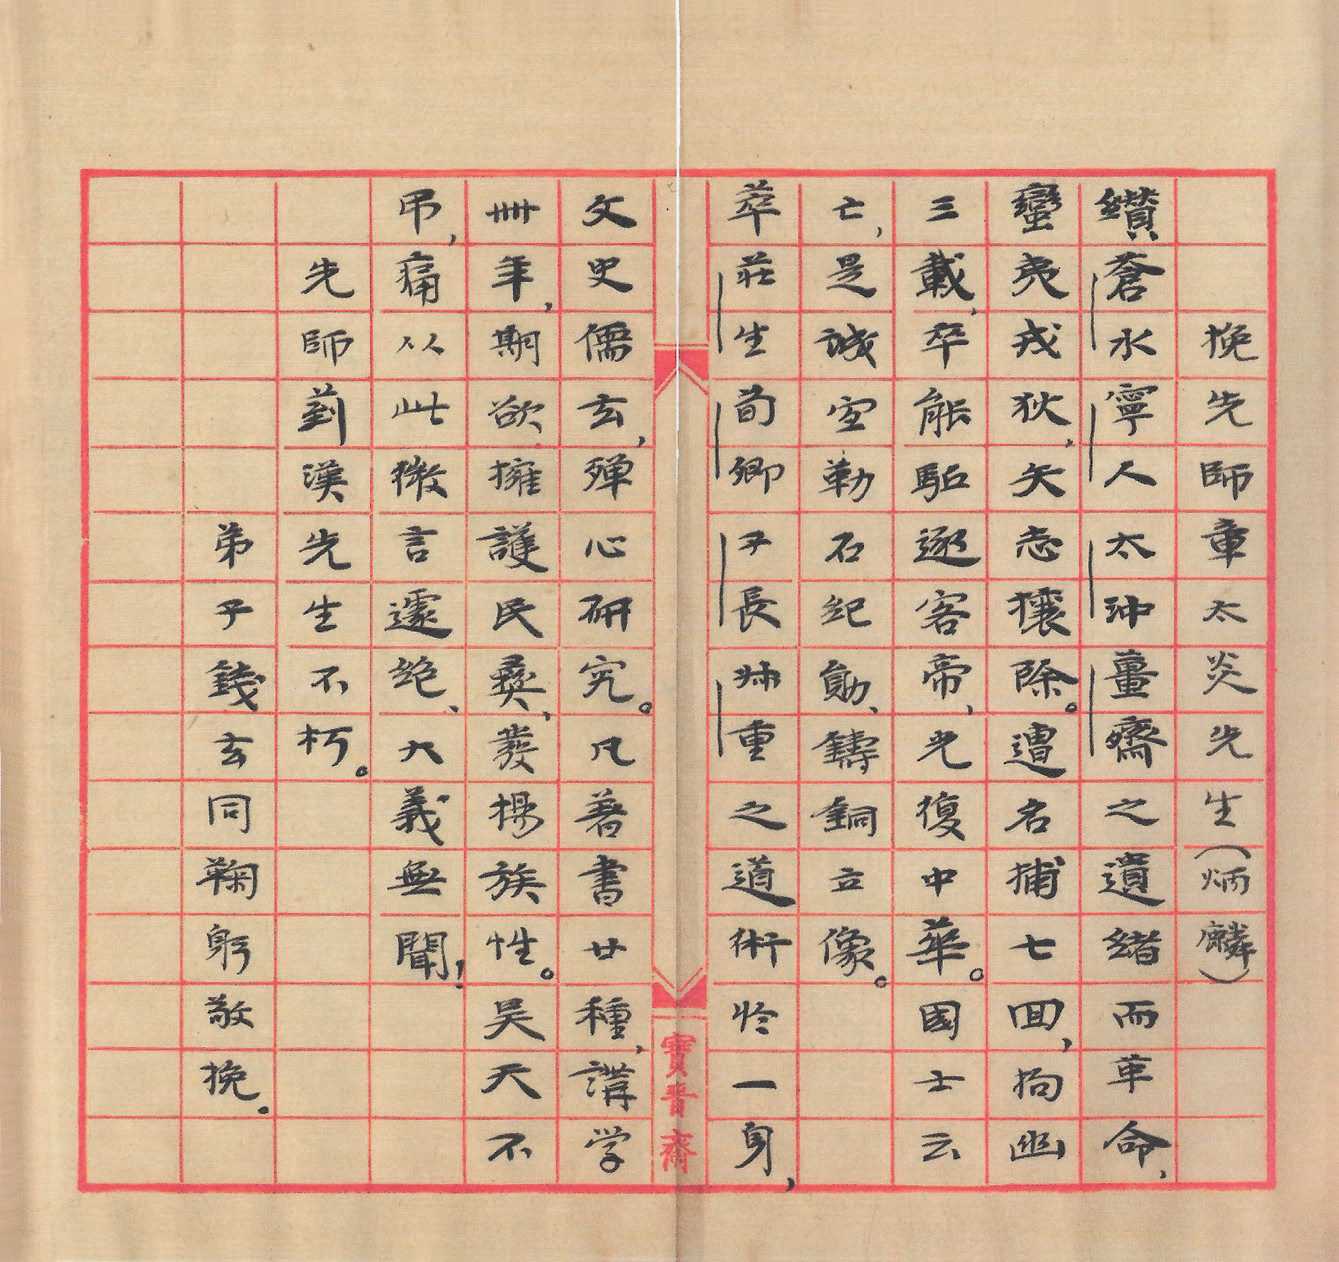 挽先師章太炎先生(炳麟)
纘蒼水寧人太沖薑齋之遺緒而革命,
蠻夷戎狄,矢志攘除。遭名捕七回,拘幽
三載,卒能驅逐客帝,光復中華。國士云
亡,是誠宜勒石紀勛、鑄銅立像。
萃莊生荀卿子長叔重之道術於一身,
文史儒玄,殫心研究。凡著書廿種,講学
卌年,期欲擁護民彝、發揚族性。昊天不
弔,痛从此微言遽絕、大義無聞!
先師菿漢先生不朽。
弟子錢玄同鞠躬敬挽。
寶晉齋